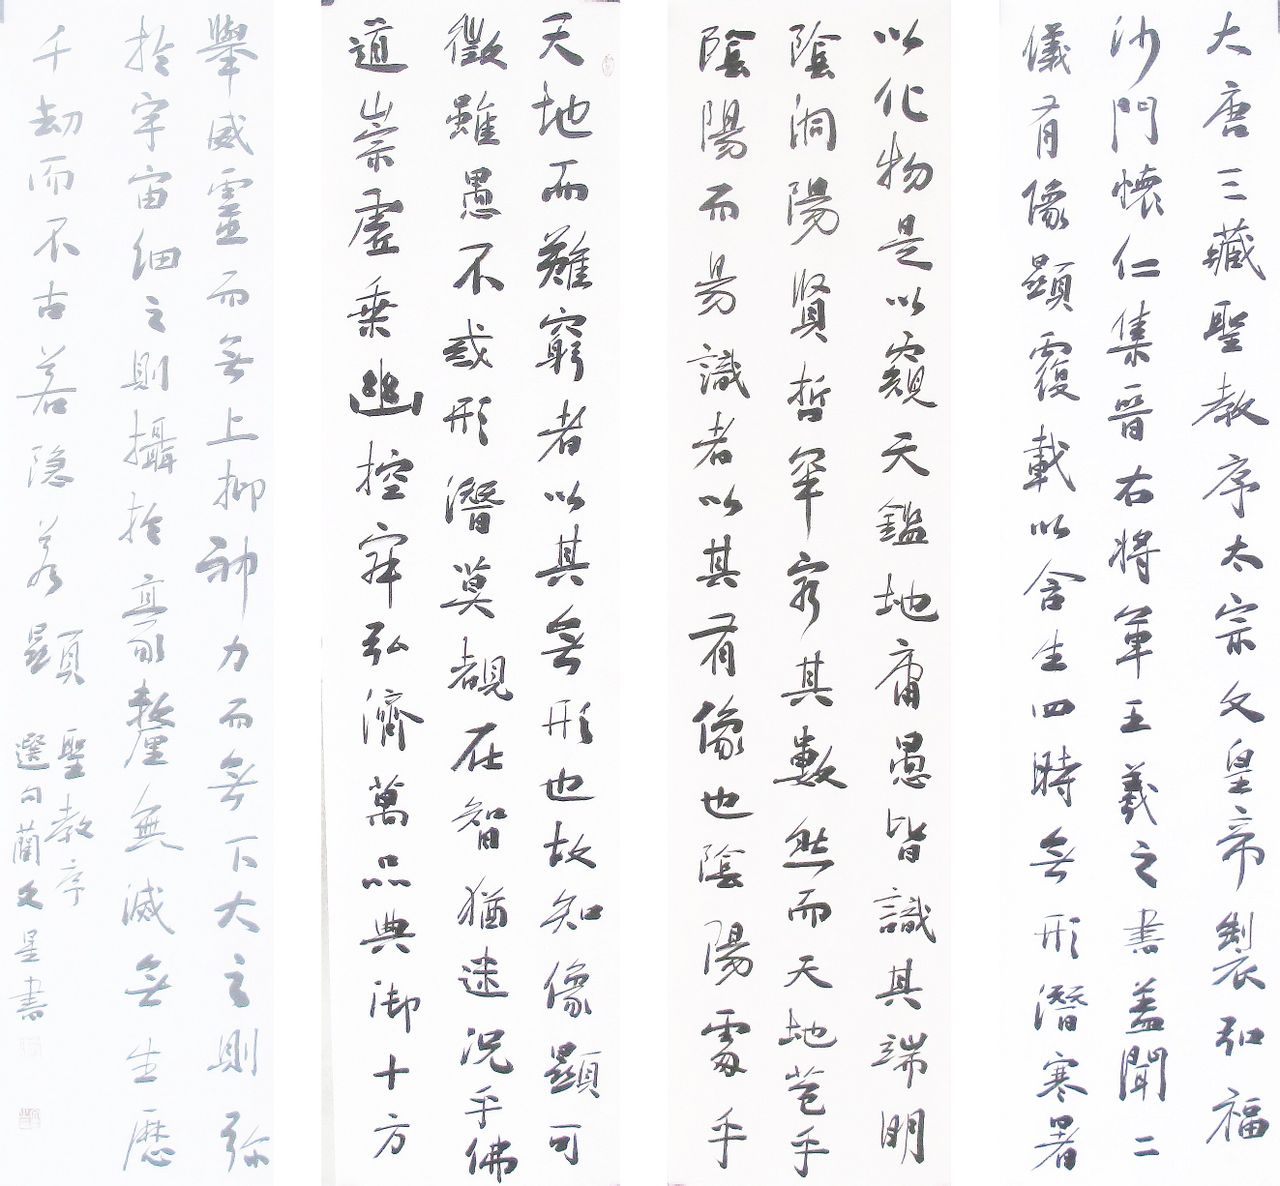 大唐三藏聖教序太宗文皇帝製弘福
沙門懷仁集晉右將軍王羲之書蓋聞二
儀有像顯覆載以含生四時無形潛寒暑
以化物是以窺天鑑地庸愚皆識其端明
陰洞陽賢哲罕窮其數然而天地苞乎
陰陽而易識者以其有像也陰陽處乎
天地而難窮者以其無形也故知像顯可
徵雖愚不惑形潛莫覩在智猶迷況乎佛
道崇虛乘幽控寂弘濟萬品典御十方
舉威靈而無上抑神力而無下大之則彌
於宇宙細之則攝於豪釐無滅無生歷
千劫而不古若隱若顯
聖教序
選句蘭文星書